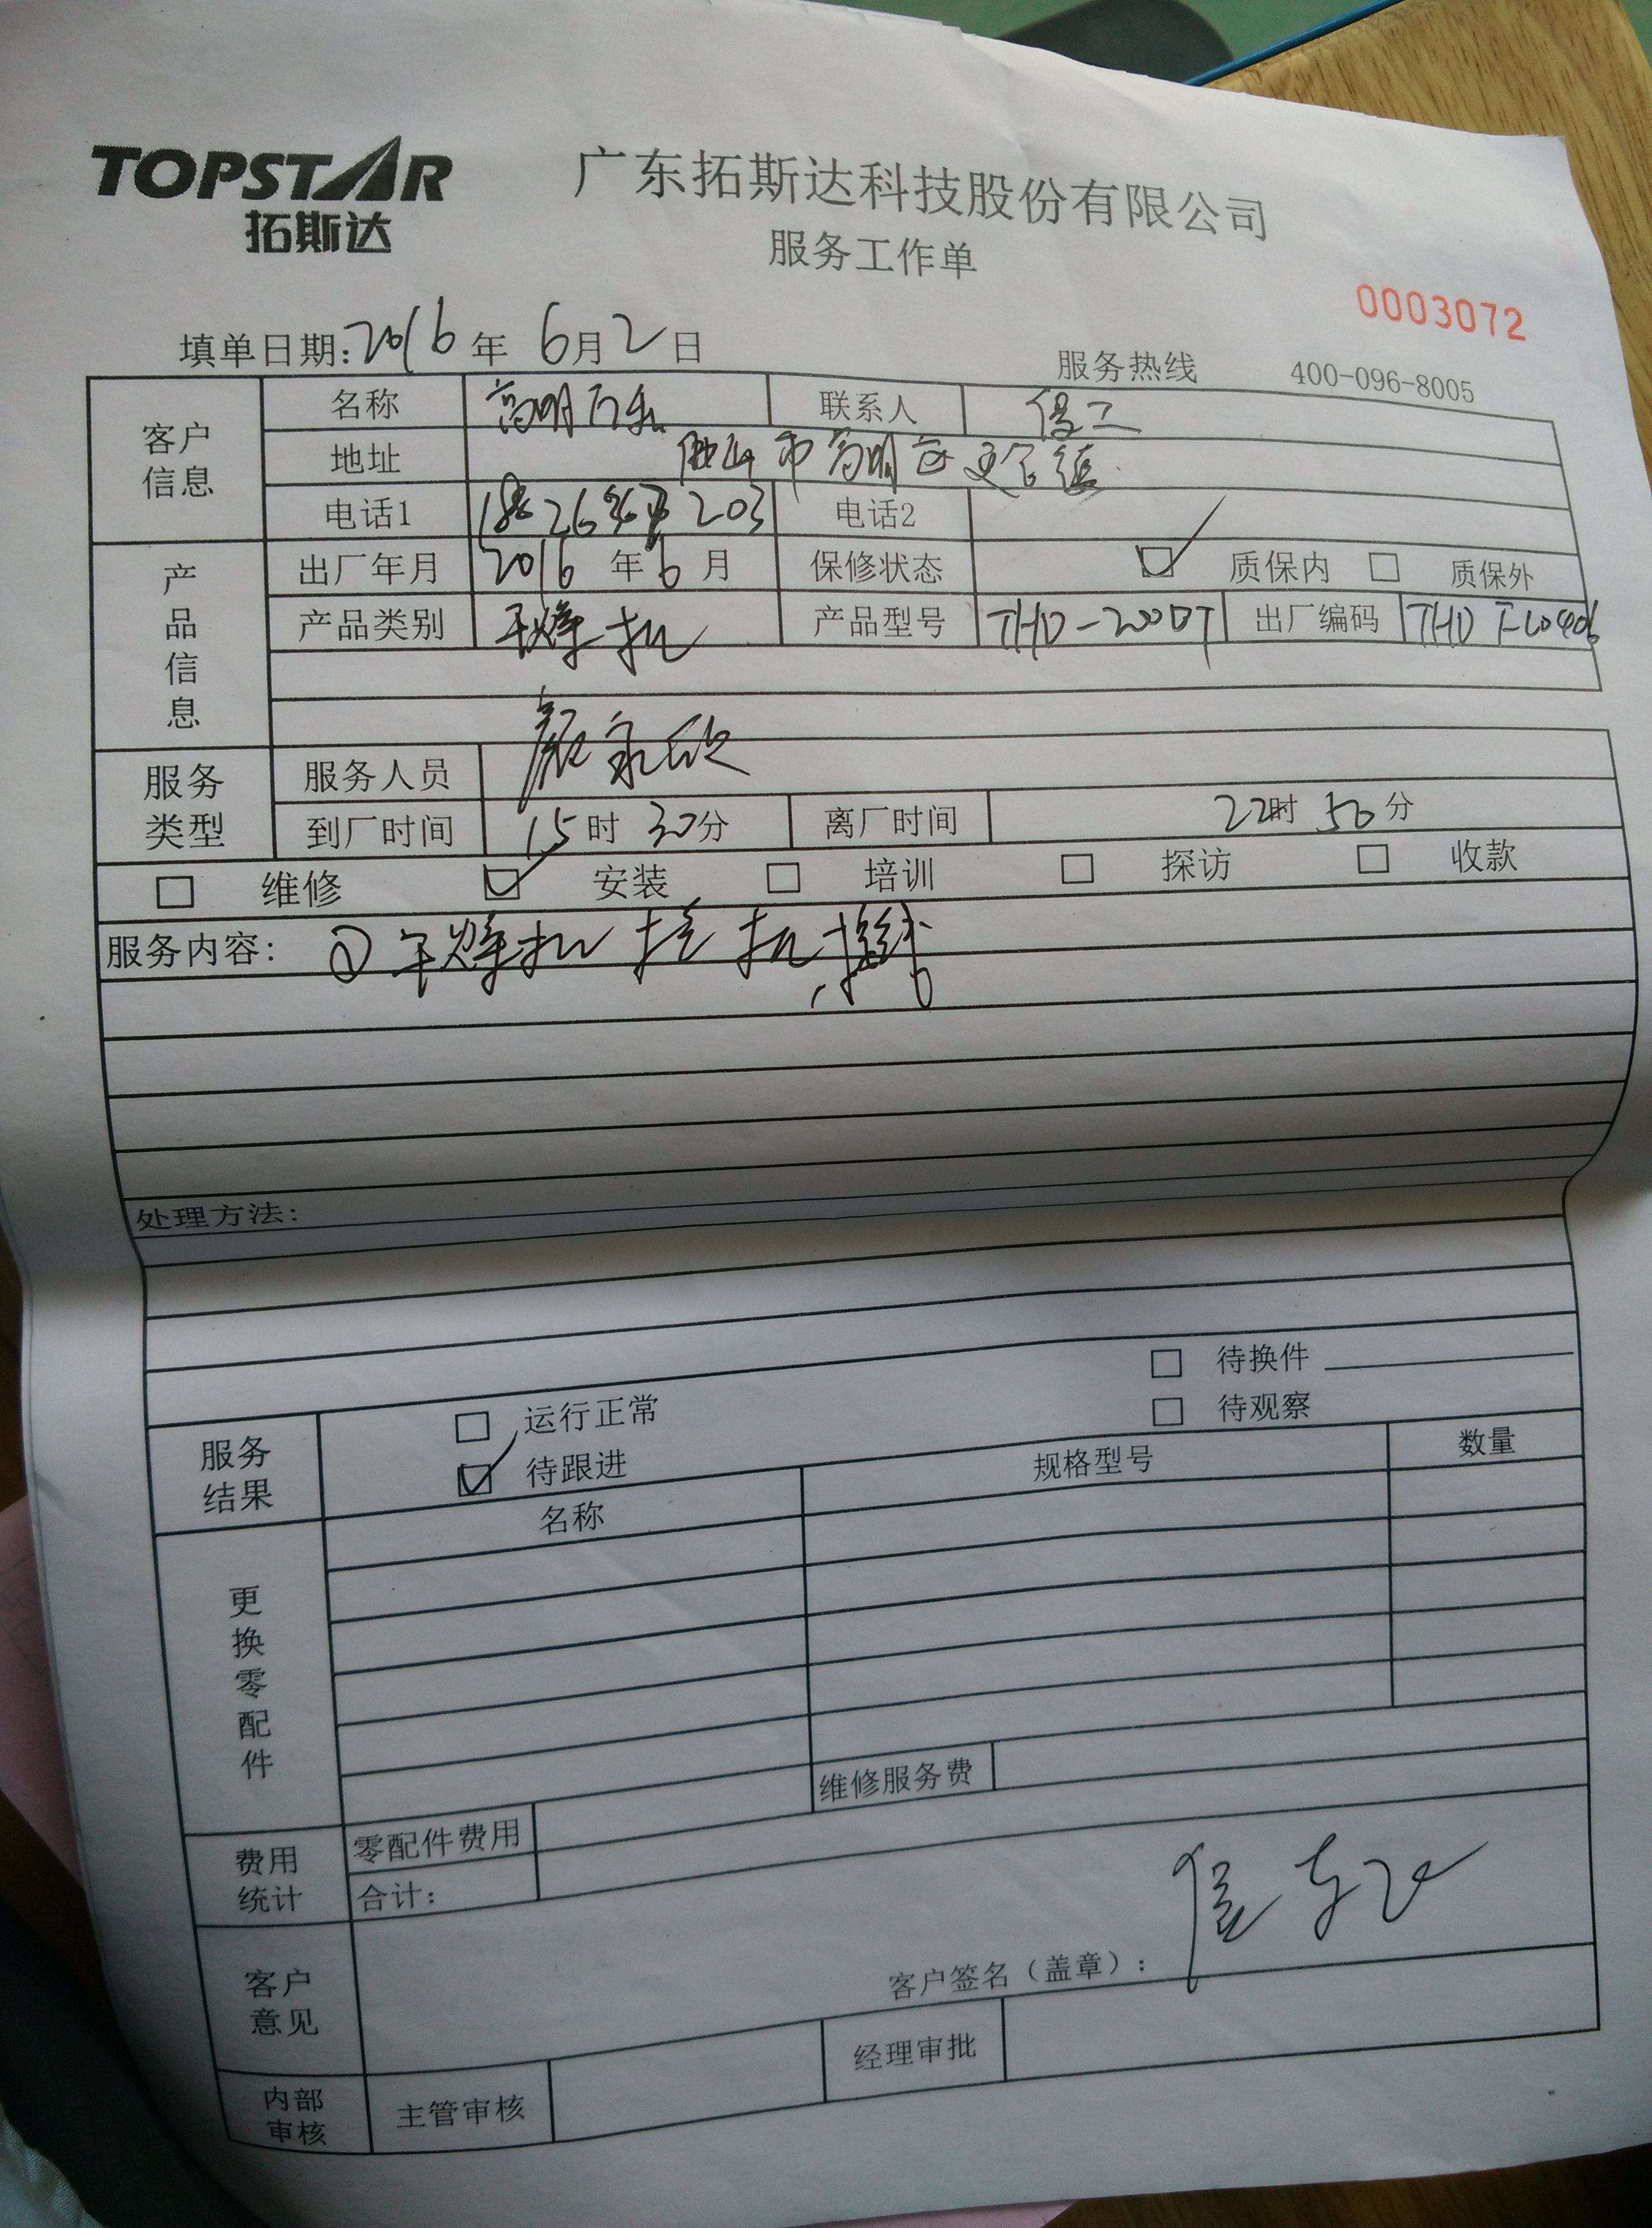 TOPSTAR
拓斯达
广东拓斯达科技股份有限公司
服务工作单
0003072
填单日期:2016年 6月2日
服务热线 400-096-8005
客户信息 名称 高明 联系人
地址 佛山市高明区更合镇
电话1 电话2
产品信息 出厂年月 2016年6月 保修状态 ☑ 质保内 □ 质保外
产品类别 干燥机 产品型号 THD-200DT 出厂编码
服务类型 服务人员
到厂时间 15时30分 离厂时间 22时50分
□ 维修 ☑ 安装 □ 培训 □ 探访 □ 收款
服务内容: ① 干燥机 机
处理方法:
服务结果 □ 运行正常 □ 待换件
☑ 待跟进 □ 待观察
更换零配件 名称 规格型号 数量
维修服务费
费用统计 零配件费用
合计:
客户意见 客户签名(盖章):
内部审核 主管审核 经理审批